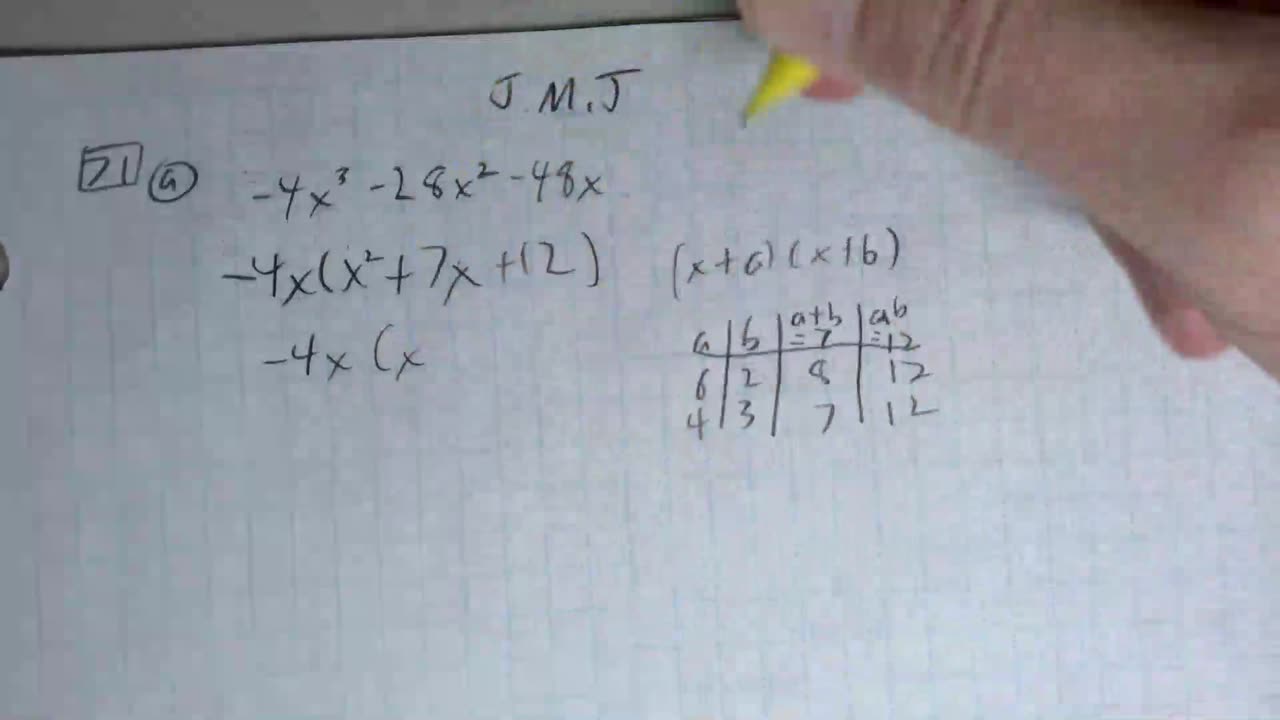 J.M.J
21 a -4x³ -28x² -48x
-4x(x² + 7x + 12) (x+a)(x+b)
-4x (x
a b a+b=7 ab=12
6 2 8 12
4 3 7 12